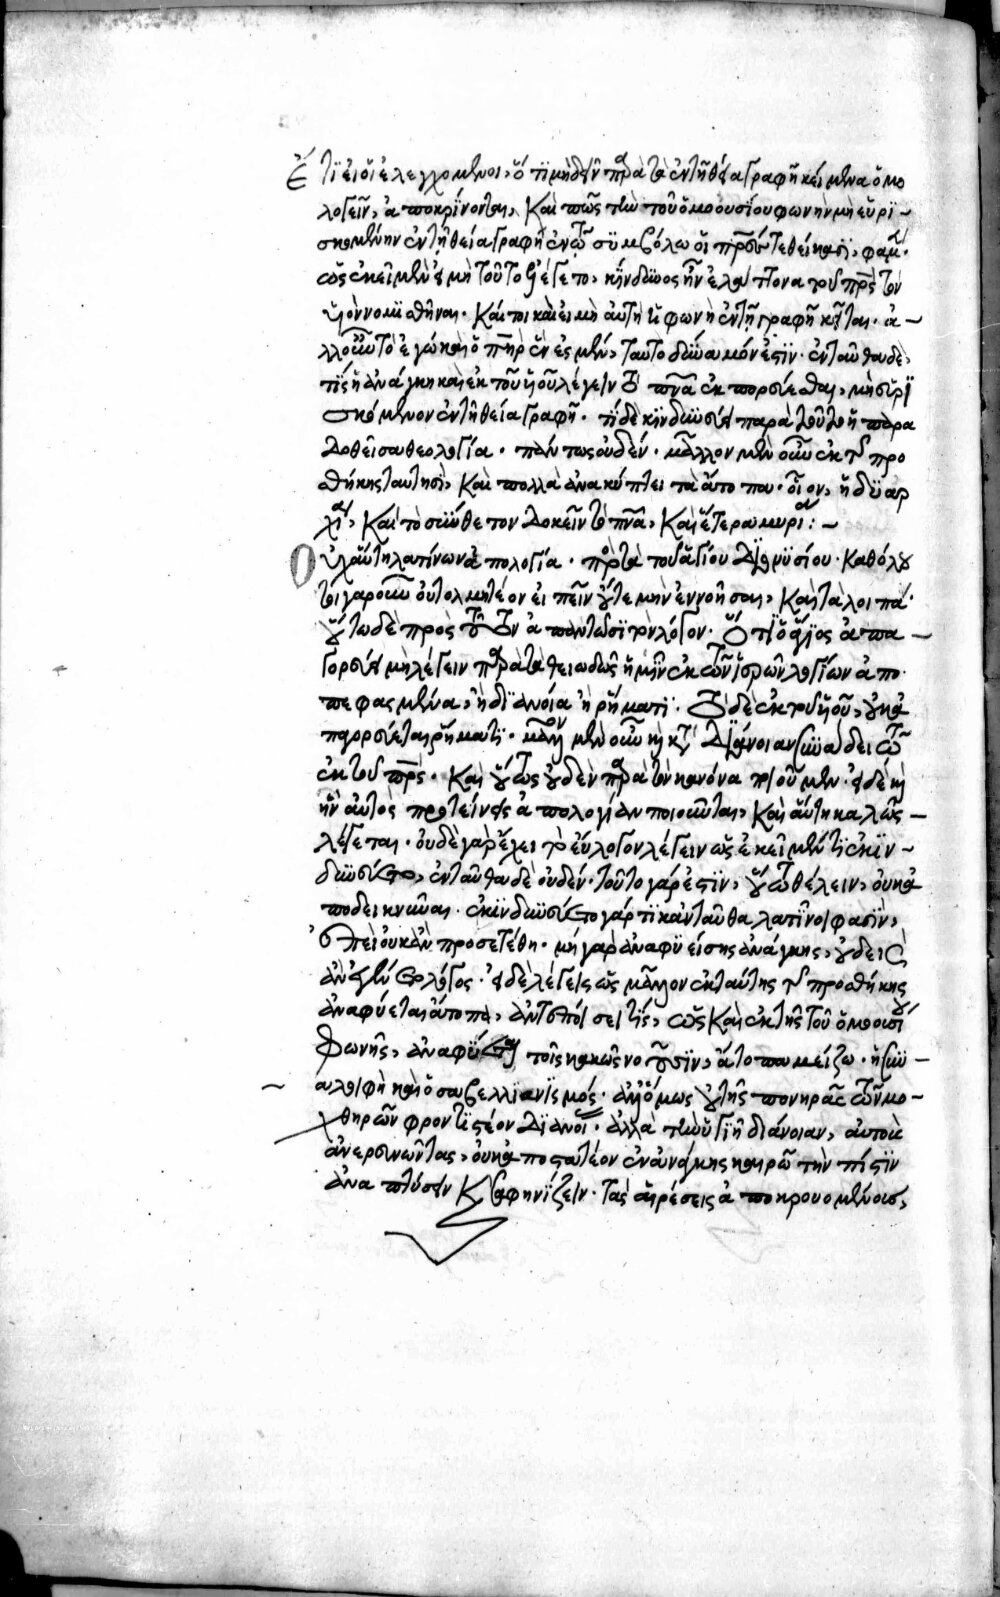 Ἔτι εἰ οἱ ἐλεγχόμενοι, ὅτι μηδὲν παρὰ τὰ ἐν τῇ θείᾳ γραφῇ κείμενα ὁμο
λογεῖν, ἀποκρίνονται, καὶ πῶς τὴν τοῦ ὁμοουσίου φωνὴν μὴ εὑρι
σκομένην ἐν τῇ θείᾳ γραφῇ ἐν τῷ συμβόλῳ οἱ πρὲς τεθείκασι, φαμέν
ὡς ἐκεῖ μὲν εἰ μὴ τοῦτο ἐλέγετο, κίνδυνος ἦν ἐλάττονα τοῦ πρς τὸν
υἱὸν νομισθῆναι. καίτοι καὶ εἰ μὴ αὐτὴ ἡ φωνὴ ἐν τῇ γραφῇ κεῖται. ἀ
λλ' οὖν τὸ ἐγὼ καὶ ὁ πηρ ἕν ἐσμεν, ταυτοδύναμόν ἐστιν. ἐνταῦθα δὲ,
τίς ἡ ἀνάγκη καὶ ἐκ τοῦ υἱοῦ λέγειν τὸ πνα ἐκπορεύεσθαι, μὴ εὑρι
σκόμενον ἐν τῇ θείᾳ γραφῇ. τί δὲ κινδυνεύει παρὰ τοῦτο ἡ παρα
δοθεῖσα θεολογία. πάντως οὐδέν. μᾶλλον μὲν οὖν ἐκ τῆς προ
θήκης ταυτησὶ, καὶ πολλὰ ἀνακύπτει τὰ ἄτοπα. οἷον, ἡ δυαρ
χία, καὶ τὸ σύνθετον δοκεῖν τὸ πνα, καὶ ἕτερα μυρία: ~
αὕτη λατίνων ἀπολογία. πρὸς τὰ τοῦ ἁγίου Διονυσίου. καθόλου
τοιγαροῦν οὐ τολμητέον εἰπεῖν οὔτε μὴν ἐννοῆσαι, καὶ τὰ λοιπά.
οὕτω δὲ πρὸς τοῦτον ἀπαντῶσι τὸν λόγον. ὅτι ὁ ἅγιος ἀπα
γορεύει μὴ λέγειν παρὰ τὰ θειωδῶς ἡμῖν ἐκ τῶν ἱερῶν λογίων ἀπο
πεφασμένα, ἢ διανοίᾳ ἢ ῥήματι. τὸ δὲ ἐκ τοῦ υἱοῦ, οὐκ ἀ
παγορεύεται ῥήματι. μᾶλλον μὲν οὖν καὶ κατὰ διάνοιαν συνᾴδει τῷ
ἐκ τοῦ πρς. καὶ οὕτως οὐδὲν παρὰ τὸν κανόνα ποιοῦμεν. εἰ δὲ καὶ
ἣν αὐτὸς προτείνεις ἀπολογίαν ποιοῦνται, καὶ αὕτη καλῶς
λέγεται. οὐδὲ γὰρ ἔχει τὸ εὔλογον λέγειν ὡς ἐκεῖ μέν τι ἐκιν
δυνεύετο, ἐνταῦθα δὲ οὐδέν. τοῦτο γάρ ἐστιν, οὕτω θέλειν, οὐκ ἀ
ποδεικνύναι. ἐκινδυνεύετο γάρ τι κἀνταῦθα λατῖνοι φασὶν,
ἐπεὶ οὐκ ἂν προσετέθη. μὴ γὰρ ἀναφυείσης ἀνάγκης, οὐδεὶς
ἂν ἐγένετο λόγος. εἰ δὲ λέγεις ὡς μᾶλλον ἐκ ταύτης τῆς προσθήκης
ἀναφύεται ἄτοπα, ἀντιθήσει τις, ὡς καὶ ἐκ τῆς τοῦ ὁμοουσίου
φωνῆς, ἀναφύεται τοῖς κακῶς νοοῦσιν, ἄτοπα μείζω. ἡ συν
αλοιφὴ καὶ ὁ σαβελλιανισμός. ἀλλ' ὅμως οὐ τῆς πονηρᾶς τῶν μο
χθηρῶν φροντιστέον διανοίας. ἀλλὰ τὴν ὑγιῆ διάνοιαν, αὐτοὺς
ἀνερευνῶντας, οὐκ ἀποστατέον ἐν ἀνάγκης καιρῷ τὴν πίστιν
ἀναπτύσσειν καὶ σαφηνίζειν. τὰς αἱρέσεις ἀποκρουομένους,